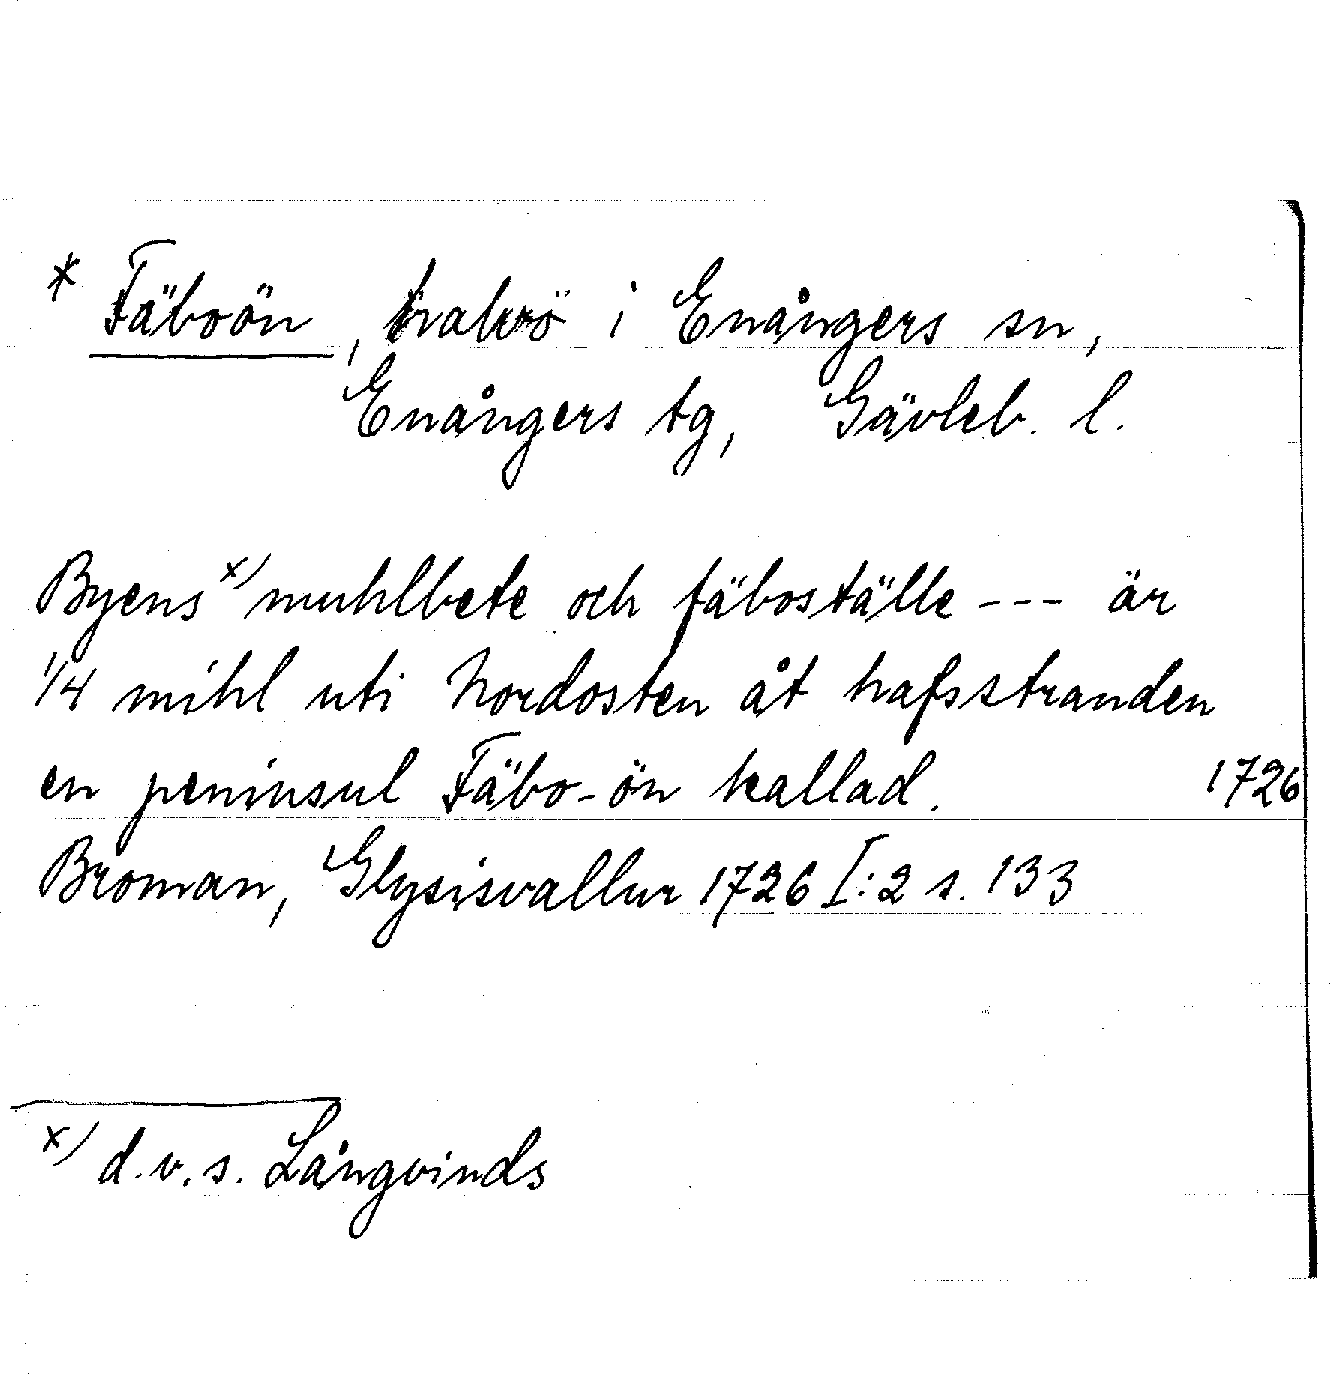 * Fäboön, halvö i Enångers sn,
Enångers tg, Gävleb. l.
Byens x) muhlbete och fäboställe --- är
1/4 mihl uti Nordosten åt hafsstranden
en peninsul Fäbo-ön kallad. 1726
Broman, Glysisvallur 1726 I:2 s. 133
x) d.v.s. Långvinds